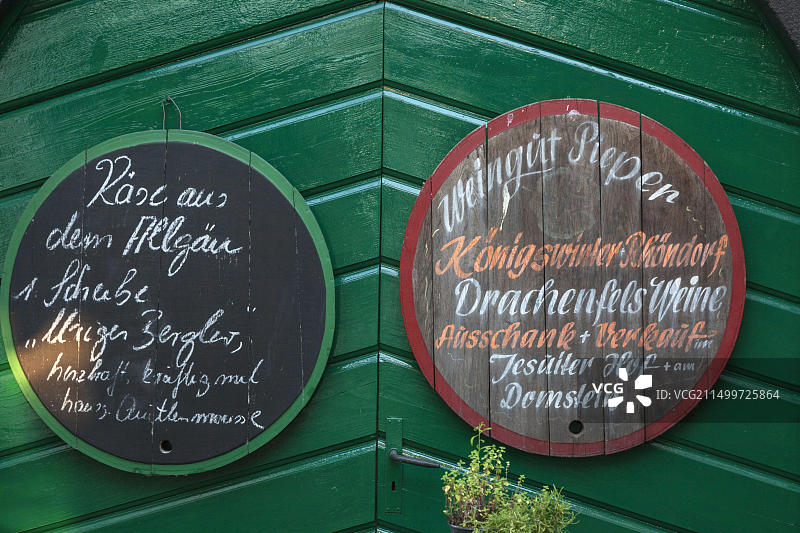 Käse aus
dem Allgäu
1 Scheibe
„Uriger Bergler"
herzhaft, kräftig mit
haus
Weingut Pieper
Königswinter Rhöndorf
Drachenfels Weine
Ausschank + Verkauf im
Jesuiter Hof + am
Domstein
VCG
VCG211499725864